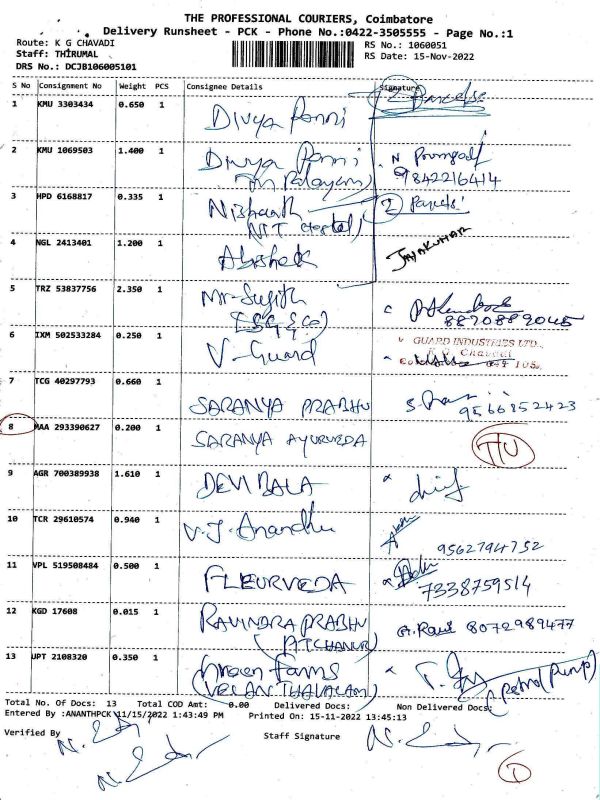 THE PROFESSIONAL COURIERS, Coimbatore
Delivery Runsheet - PCK - Phone No.:0422-3505555 - Page No.:1
Route: K G CHAVADI RS No.: 1060051
Staff: THIRUMAL RS Date: 15-Nov-2022
DRS No.: DCJB106005101
S No Consignment No Weight PCS Consignee Details Signature
1 KMU 3303434 0.650 1 Divya Ponni
2 KMU 1069503 1.400 1 Divya Ponni N
9842216414
3 HPD 6168817 0.335 1 Nishanth 2
4 NGL 2413401 1.200 1 Abishek JAYAKUMAR
5 TRZ 53837756 2.350 1 Mr-Sujith
8870889045
6 IXM 502533284 0.250 1 V-Guard GUARD INDUSTRIES LTD.,
7 TCG 40297793 0.660 1 SARANYA PRABHU
9566852423
8 MAA 293390627 0.200 1 SARANYA AYURVEDA
9 AGR 700389938 1.610 1 DEVI BALA
10 TCR 29610574 0.940 1 V.J. Anandhu
9562794752
11 VPL 519508484 0.500 1 FLEURVEDA
7338759514
12 KGD 17608 0.015 1 RAVINDRA PRABHU 8072989477
13 UPT 2108320 0.350 1 Green Farms
(VELANTHAVALAM) (Petrol Pump)
Total No. Of Docs: 13 Total COD Amt: 0.00 Delivered Docs: Non Delivered Docs:
Entered By :ANANTHPCK 11/15/2022 1:43:49 PM Printed On: 15-11-2022 13:45:13
Verified By Staff Signature